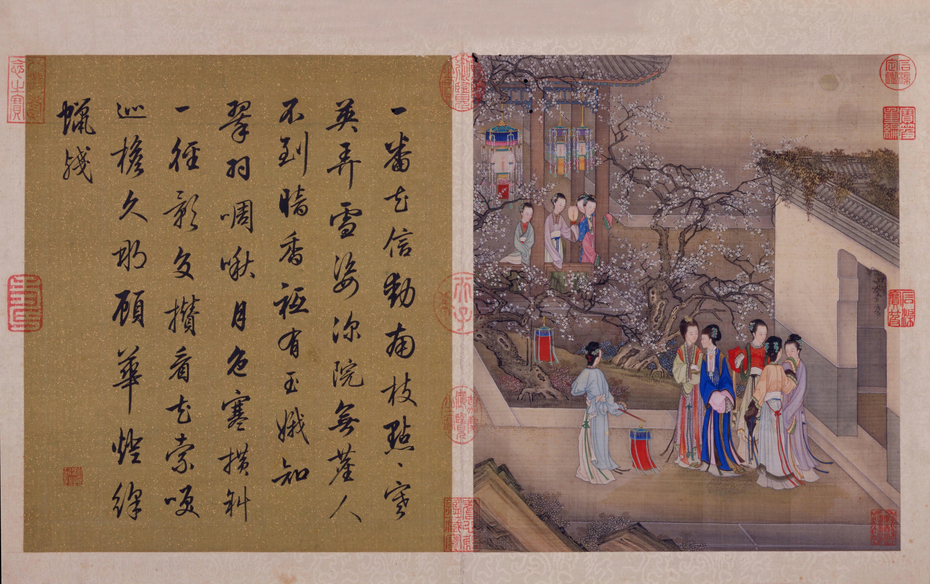 一番花信勒南枝點、寒
英弄雪姿深院無塵人
不到暗香祗有玉娥知
翠羽啁啾月色寒橫斜
一徑影交攢看花索咲
巡檐久那顧華燈絳
蠟殘